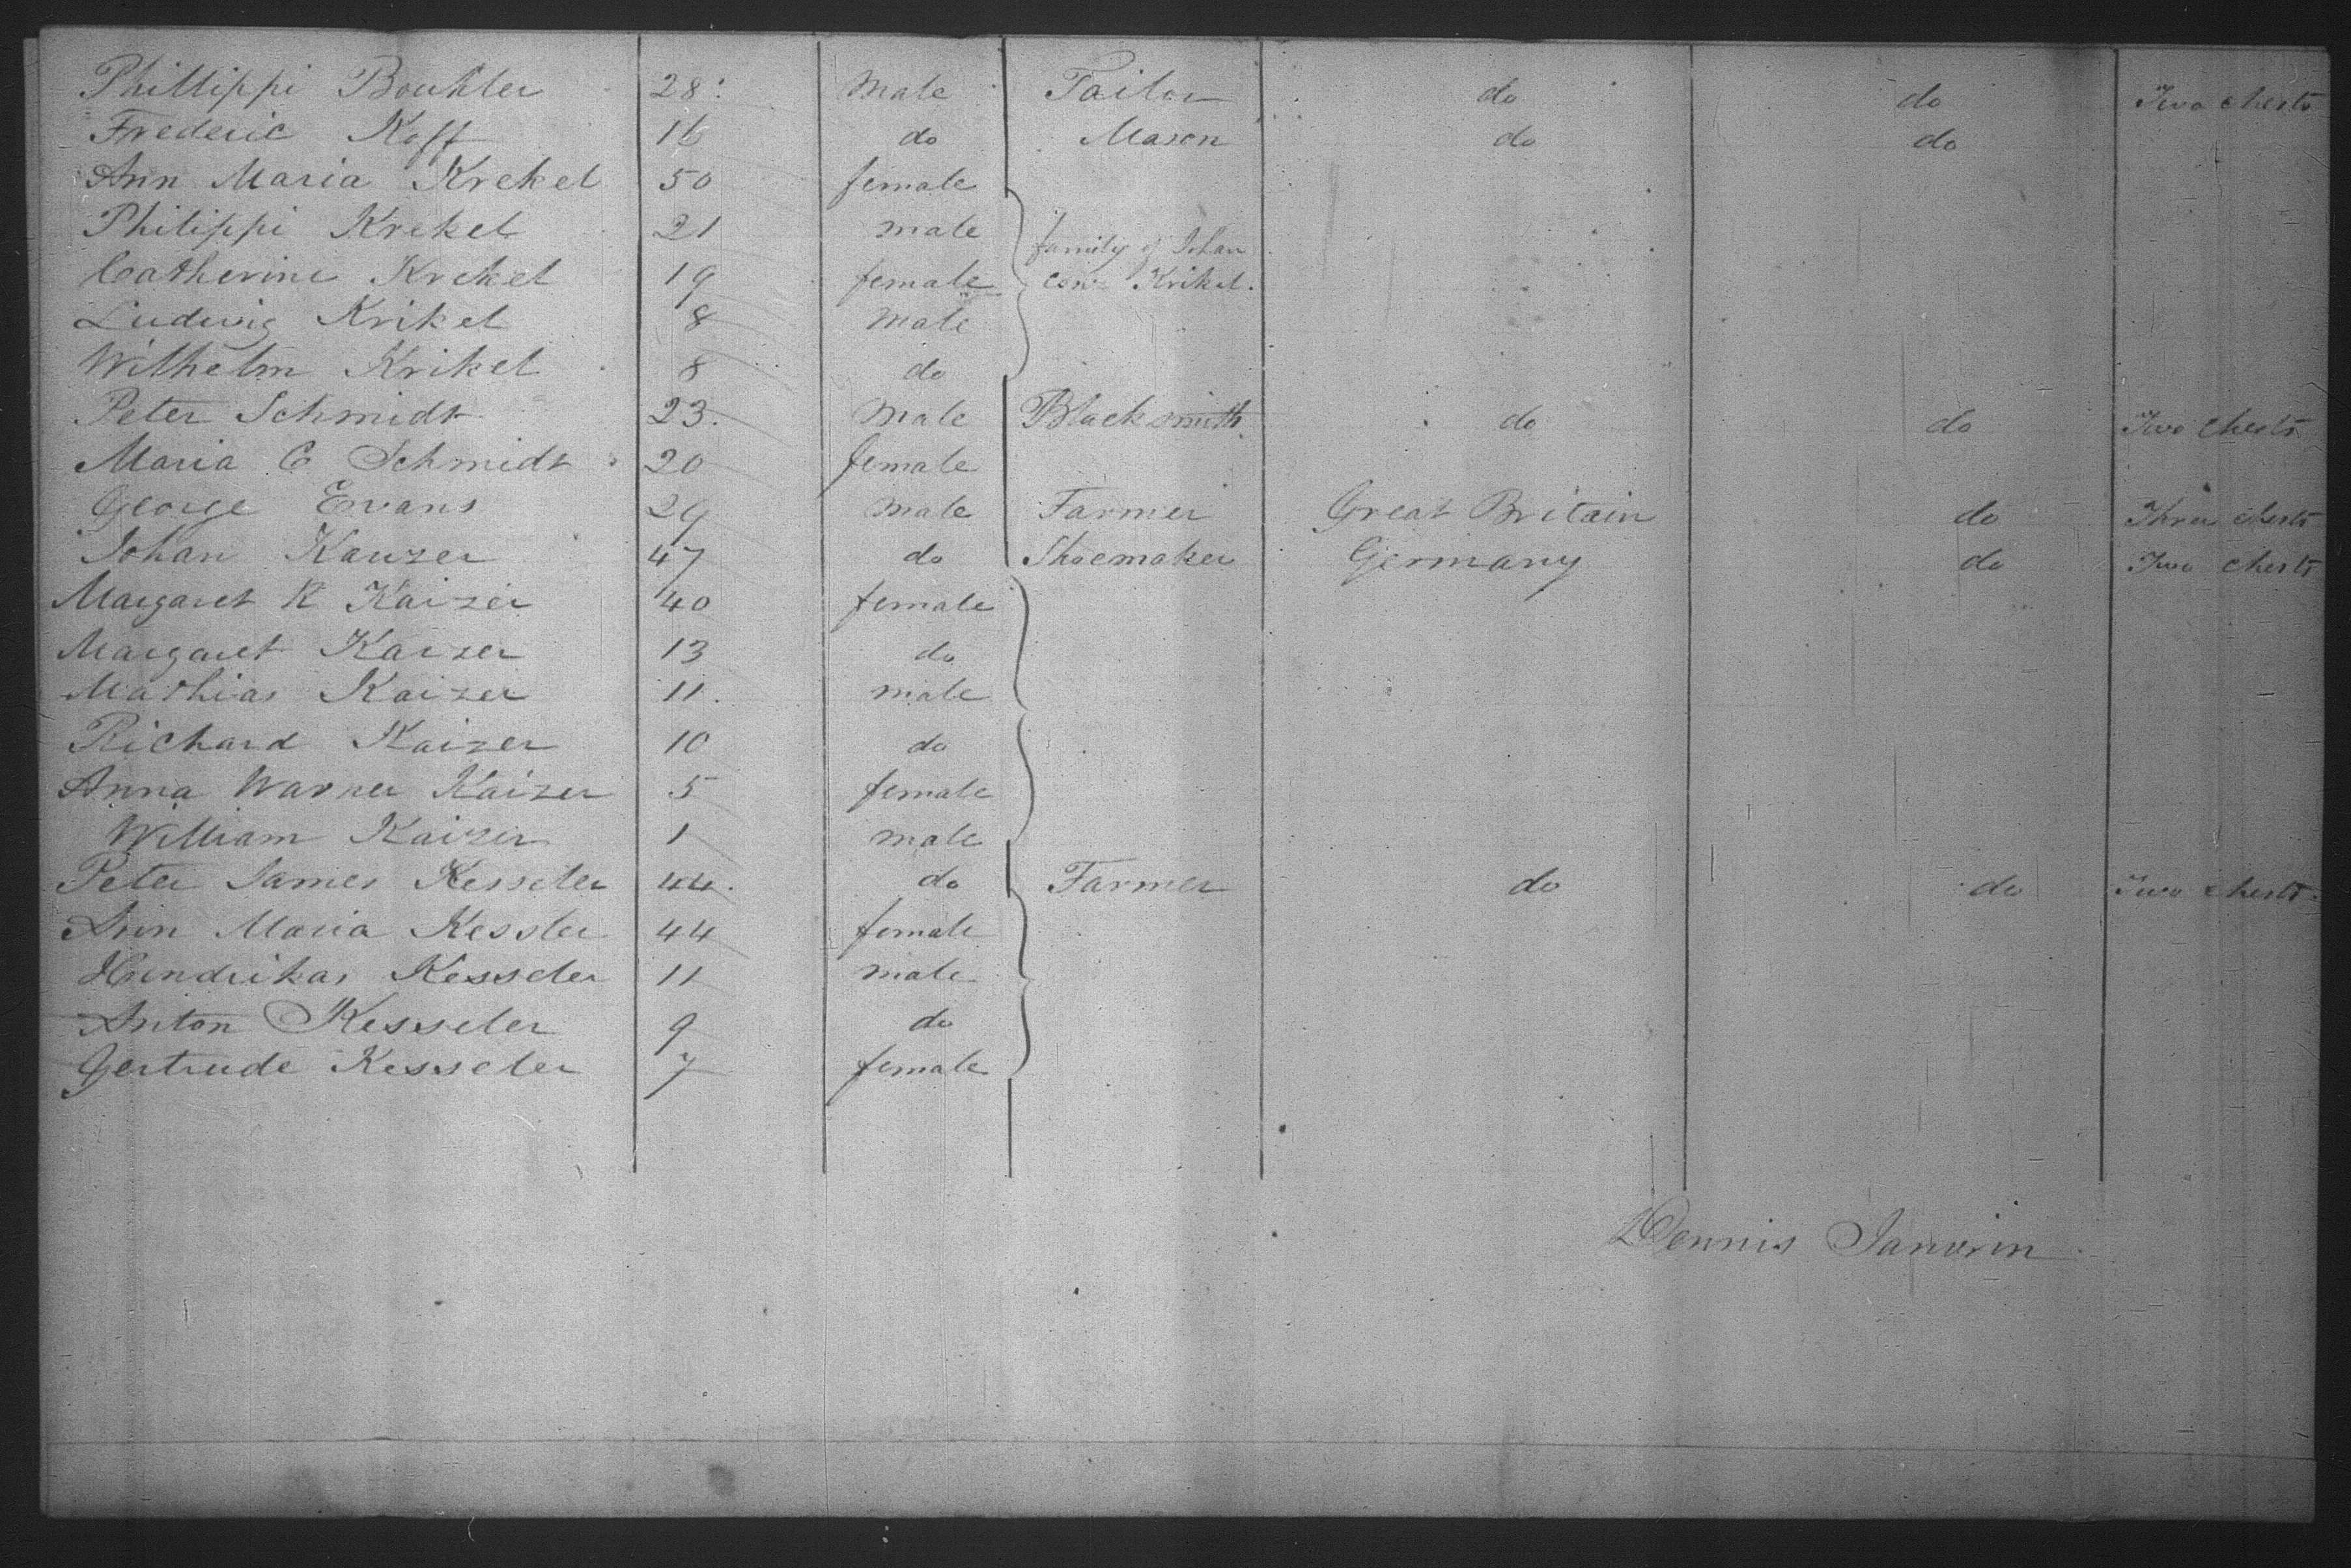 Phillippi Bouhler 28 Male Tailor do do Two chests
Frederic Koff 16 do Mason do do
Ann Maria Krekel 50 female
Philippi Krekel 21 male
family of Johan
Catherine Krekel 19 female Con Krikel.
Ludwig Krikel 8 Male
Wilhelm Krikel 8 do
Peter Schmidt 23. Male Blacksmith do do Two chests
Maria C Schmidt 20 female
George Evans 29 Male Farmer Great Britain do Three chests
Johan Kauzer 47 do Shoemaker Germany do Two chests
Margaret K Kaizer 40 female
Margaret Kaizer 13 do
Mathias Kaizer 11. male
Richard Kaizer 10 do
Anna Warner Kaizer 5 female
William Kaizer 1 male
Peter James Kesseler 44. do Farmer do do Two chests.
Ann Maria Kessler 44 female
Hendrikas Kesseler 11 male
Anton Kesseler 9 do
Gertrude Kesseler 7 female
Dennis Janvrin